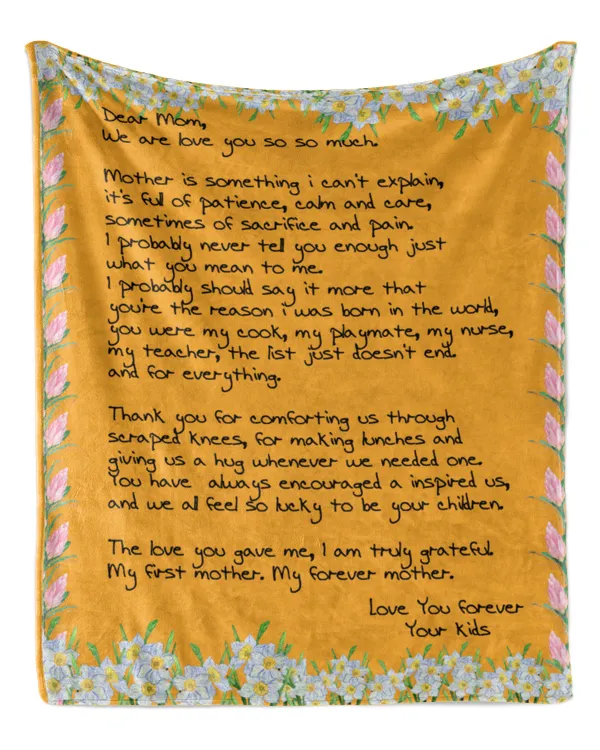 Dear Mom,
We are love you so so much.
Mother is something i can't explain,
it's full of patience, calm and care,
sometimes of sacrifice and pain.
I probably never tell you enough just
what you mean to me.
I probably should say it more that
you're the reason i was born in the world,
you were my cook, my playmate, my nurse,
my teacher, the list just doesn't end.
and for everything.
Thank you for comforting us through
scraped knees, for making lunches and
giving us a hug whenever we needed one.
You have always encouraged a inspired us,
and we all feel so lucky to be your children.
The love you gave me, I am truly grateful.
My first mother. My forever mother.
Love You forever
Your Kids